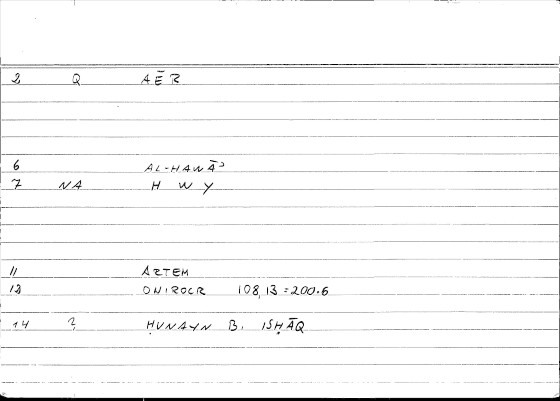 2 Q AĒR
6 AL-HAWĀʾ
7 NA H W Y
11 ARTEM
12 ONIROCR 108,13=200.6
14 ? ḤUNAYN B. ISḤĀQ